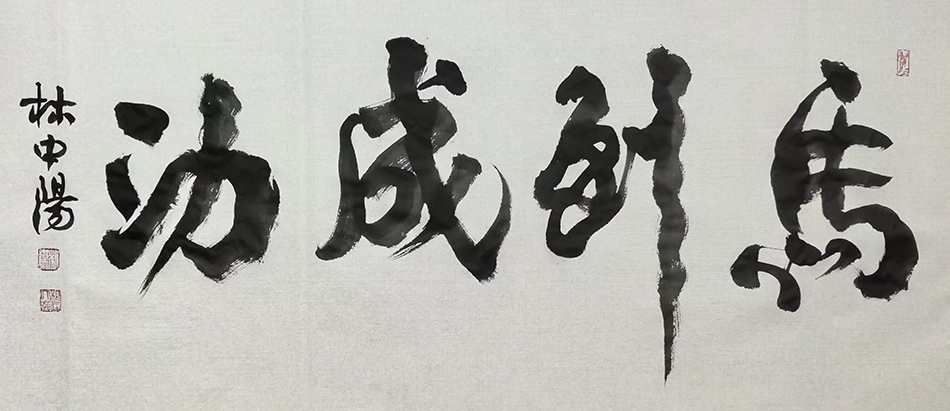 馬到成功
林中陽